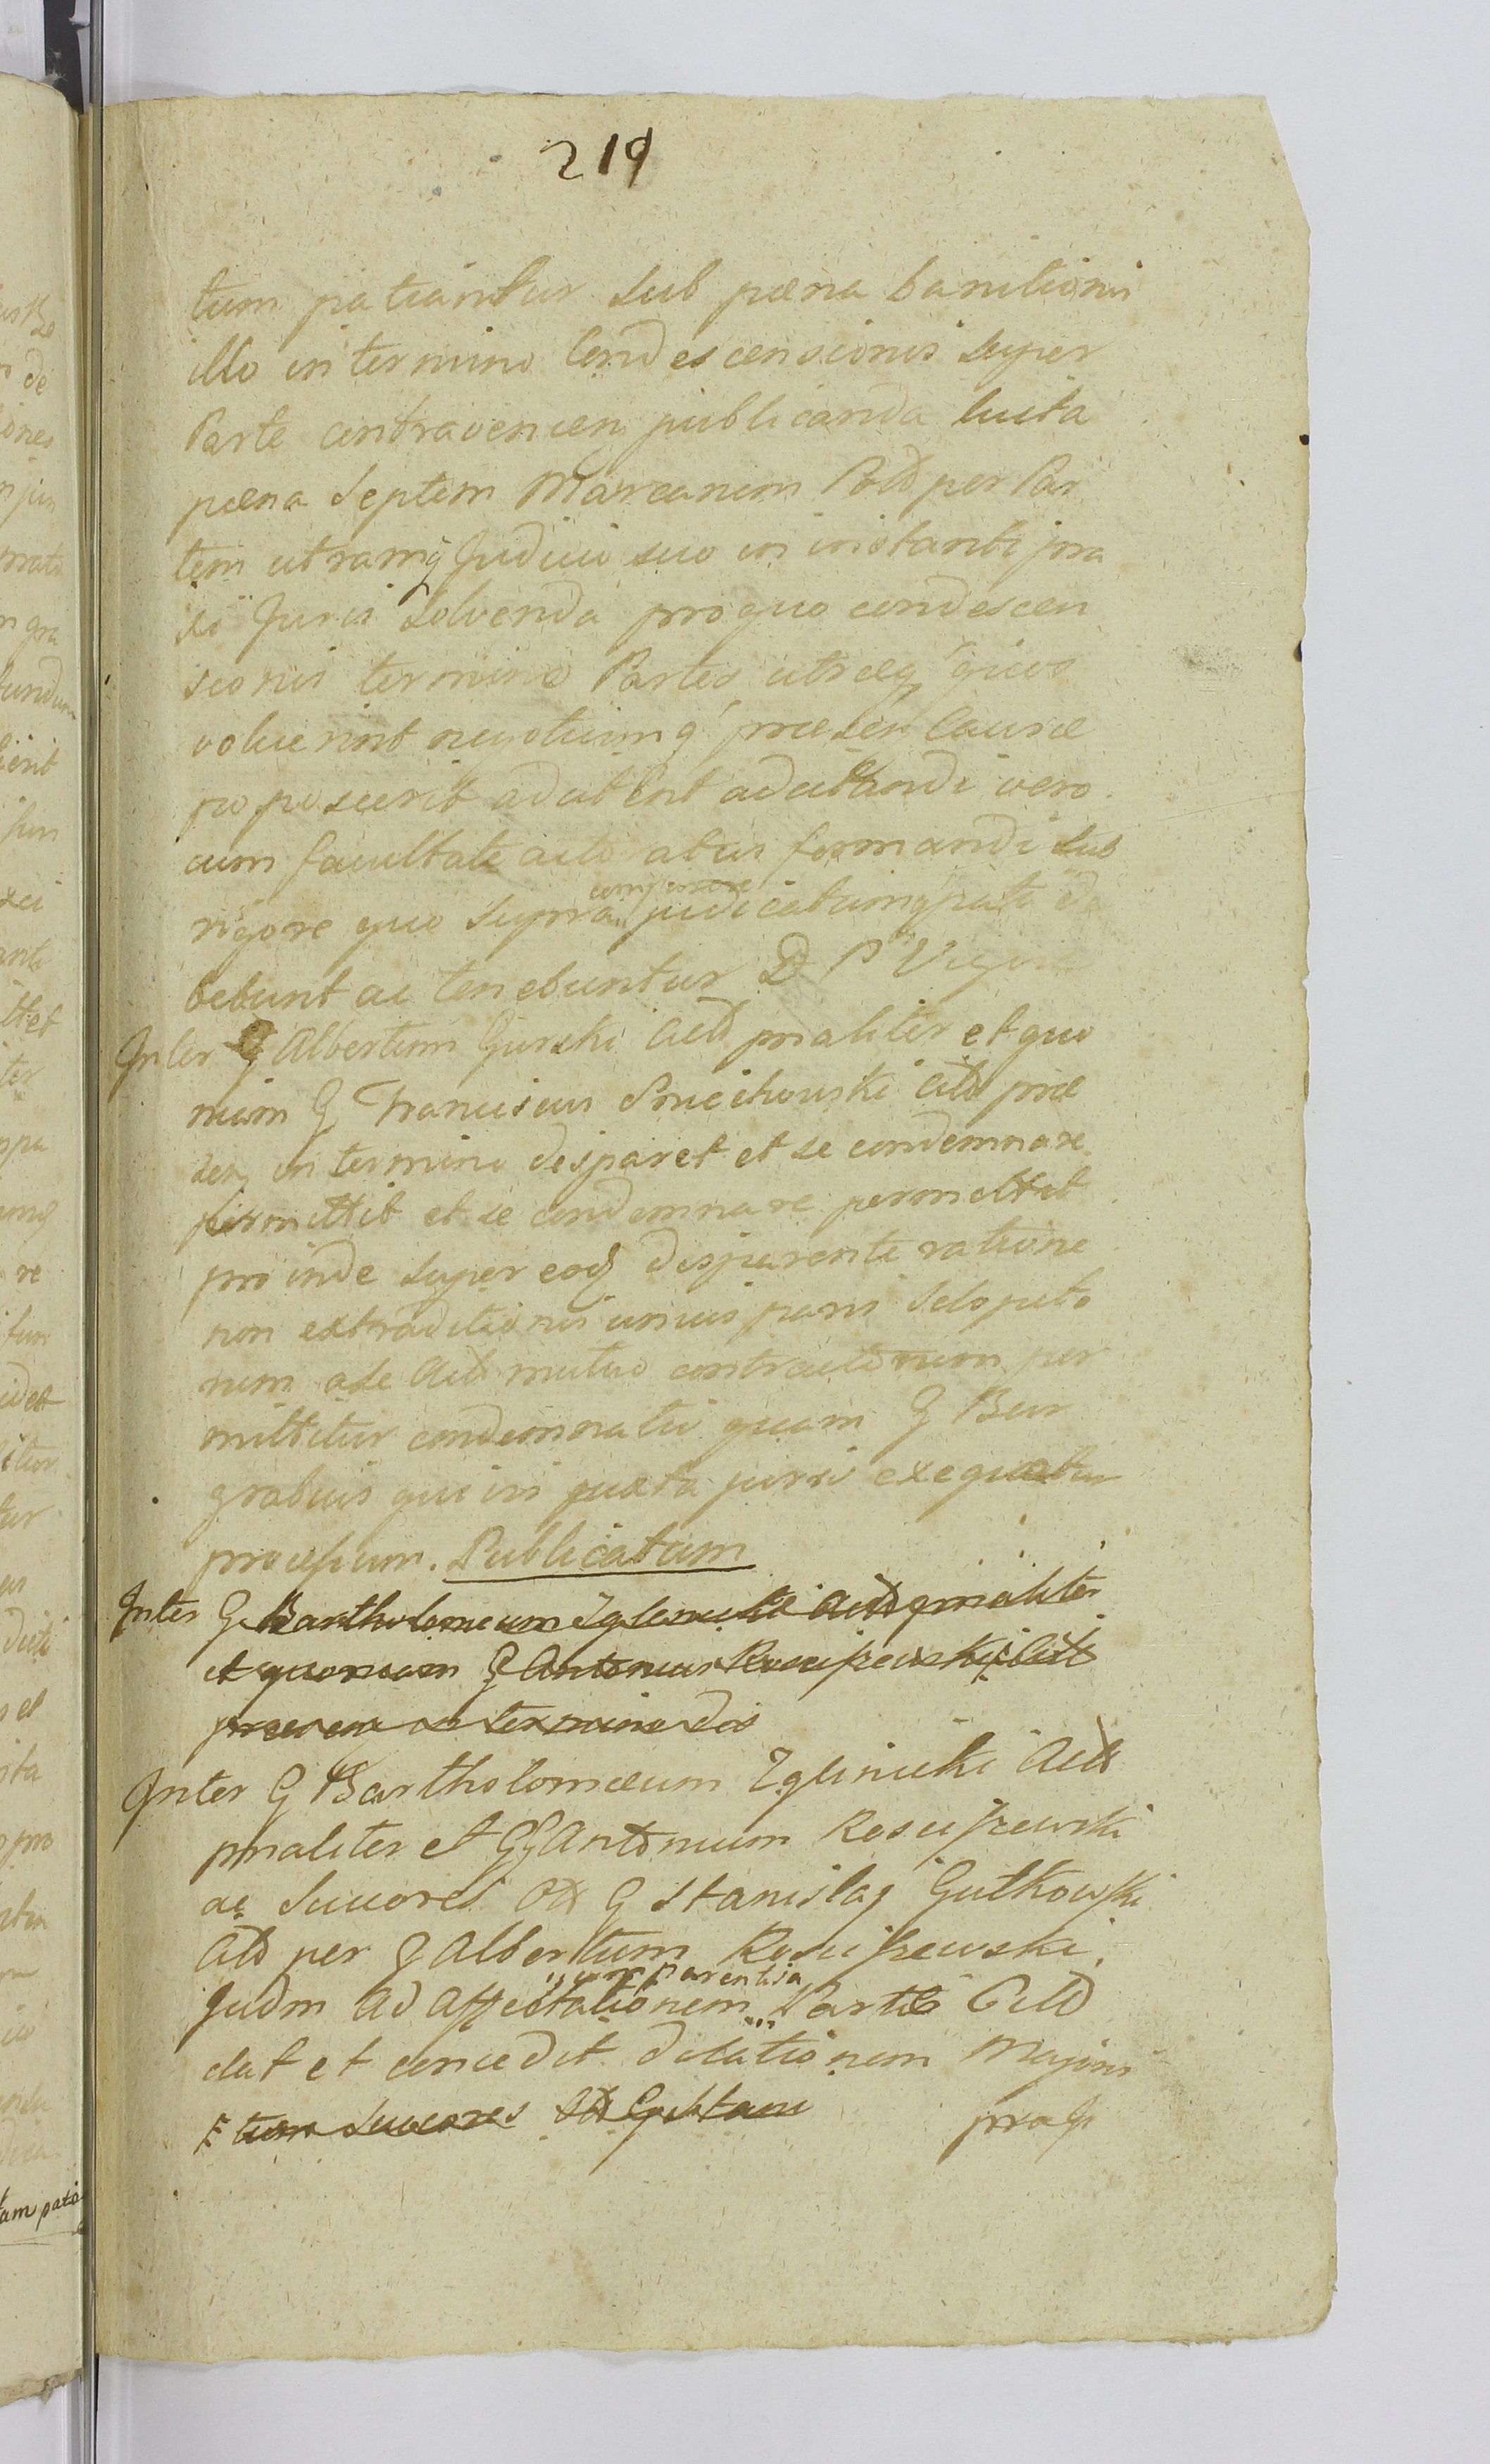 219
tum patiantur sub pœna banitionis
illo in termino Condescensionis super
Parte contravenien publicanda luita
pœna Septem Marcarum Pold per Par
tem utramq Judicio suo in instanti pra
si Juris solvenda pro quo condescen
sionis termino Partes utræq quos
voluerint negotiumq præsen Causæ
poposcerit adcitent adcitandi vero
cum facultate acto atus formandi sub
rigore quo supra comparere judicatumq pati de
bebunt ac tenebuntur D P Vigore
Inter G Albertum Gurski Actd pnaliter et quo
niam G Franciscus Smiechowski Citd præ
sen in termino desparet et se condemnare
permittit et se condemnare permittit
pro inde super eod desparente ratione
non extraditionis unius paris Sclopeto
rum a se Actd mutuo contractorum per
mittitur condemnatio quam G Bur
grabius qui iri juxta juris exequatur
processum. Publicatum
Inter G Bartholomeum Zglinicki Actd pnaliter
et quoniam G Antonius Rosciszewski Citd
præsen in termino des
Inter G Bartholomæum Zglinicki Actd
pnaliter et GG Antonium Rosciszewski
ac Succores Od G Stanislai Gutkowski
Citd per G Albertum Rosciszewski
Judm ad affectationem comparentis Partis Citd
dat et concedit dilationem Majoris
tum Succores